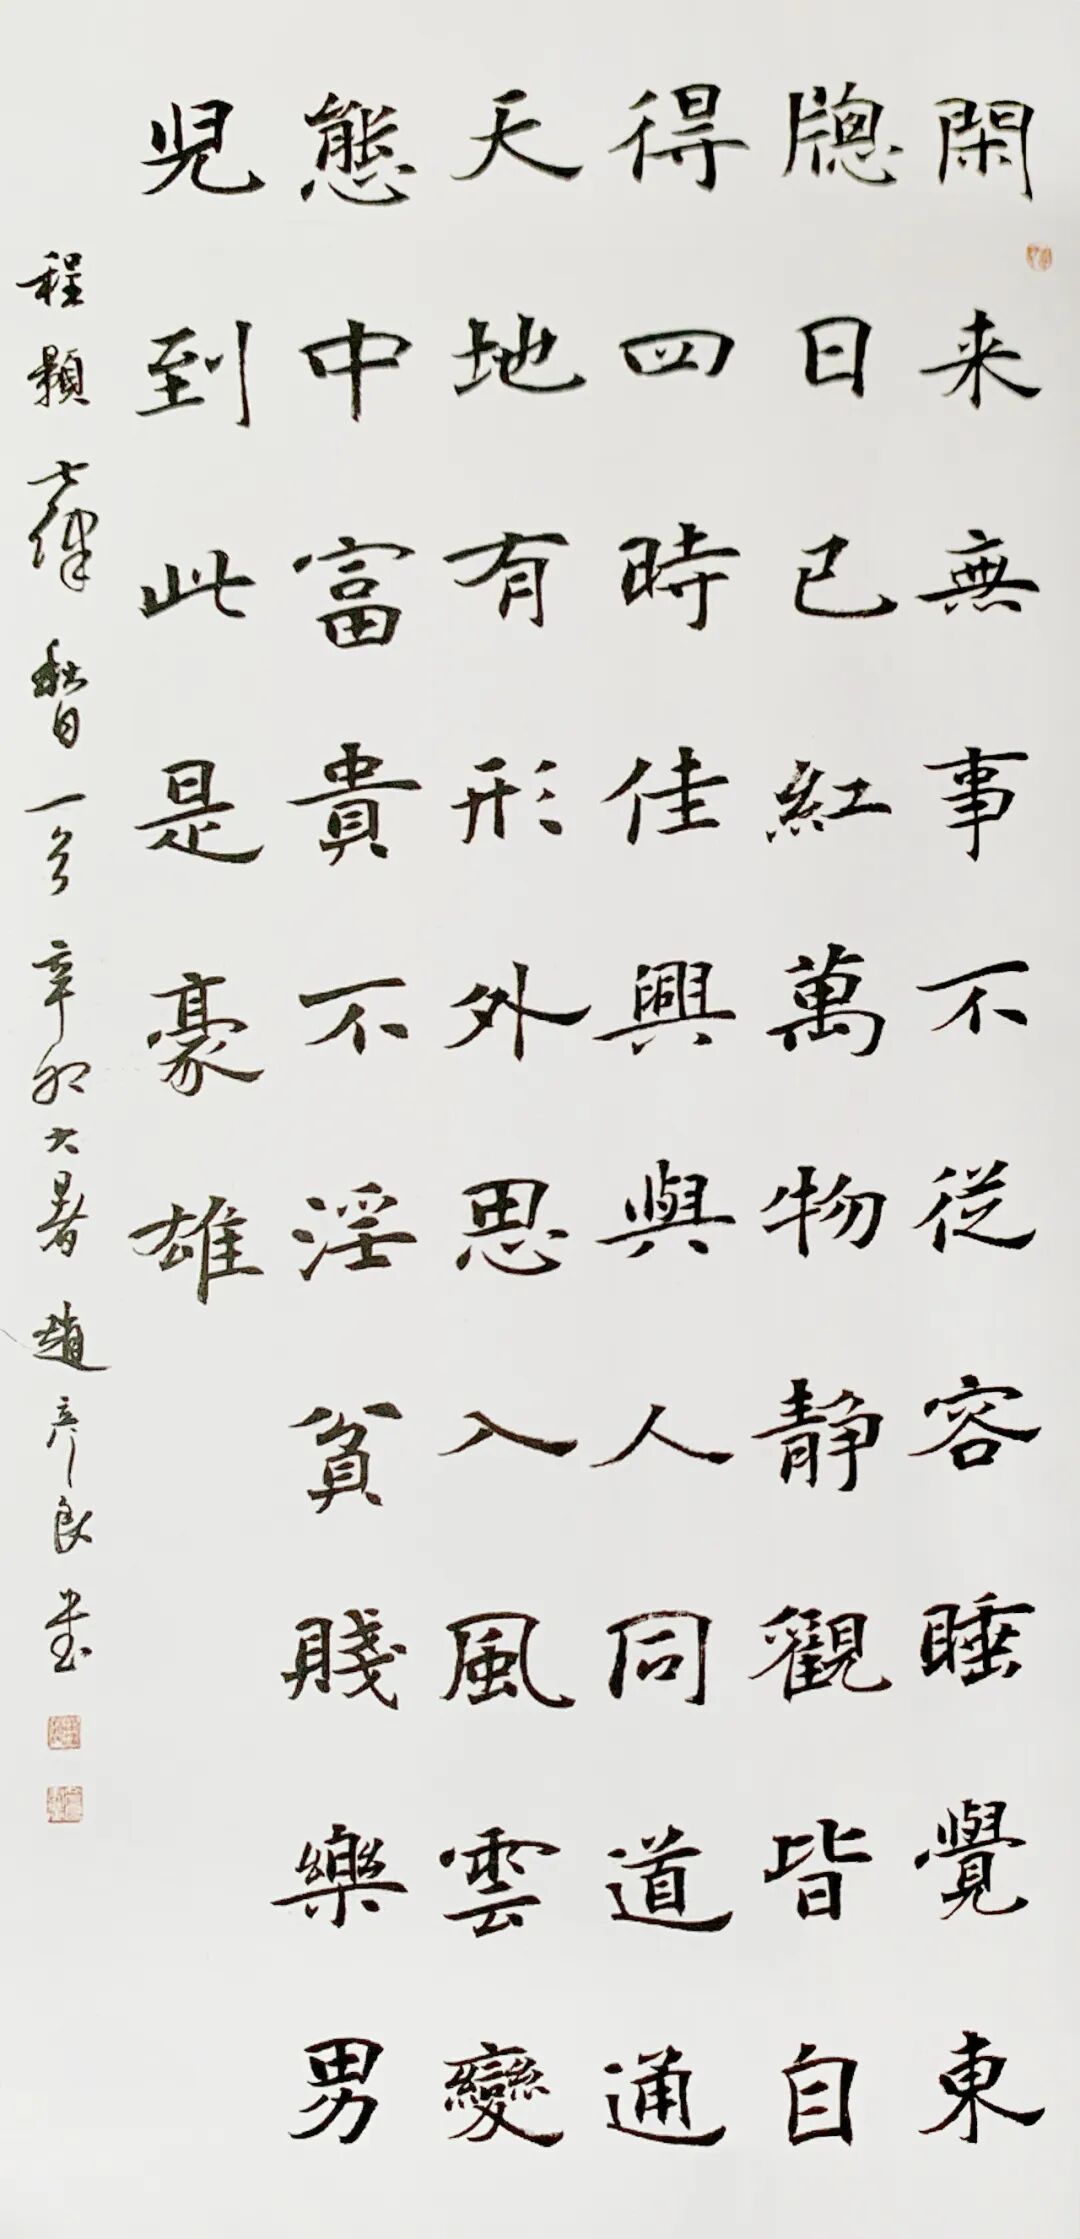 閑来無事不從容睡覺東
牕日已紅萬物静觀皆自
得四時佳興與人同道通
天地有形外思入風雲變
態中富貴不淫貧賤樂男
児到此是豪雄
程顥七律秋日一首辛卯大暑趙彦良書